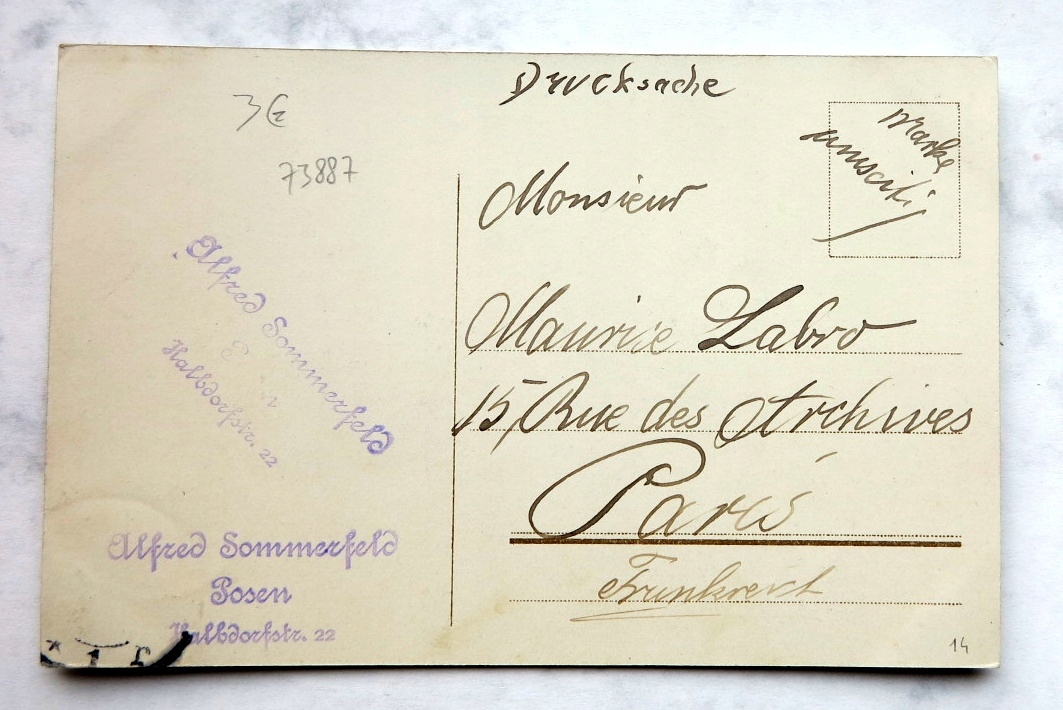 Drucksache
Marke
umseitig
3€
73887
Monsieur
Maurice Labro
15, Rue des Archives
Paris
Frankreich
Alfred Sommerfeld
Halbdorfstr. 22
Alfred Sommerfeld
Posen
Halbdorfstr. 22
14